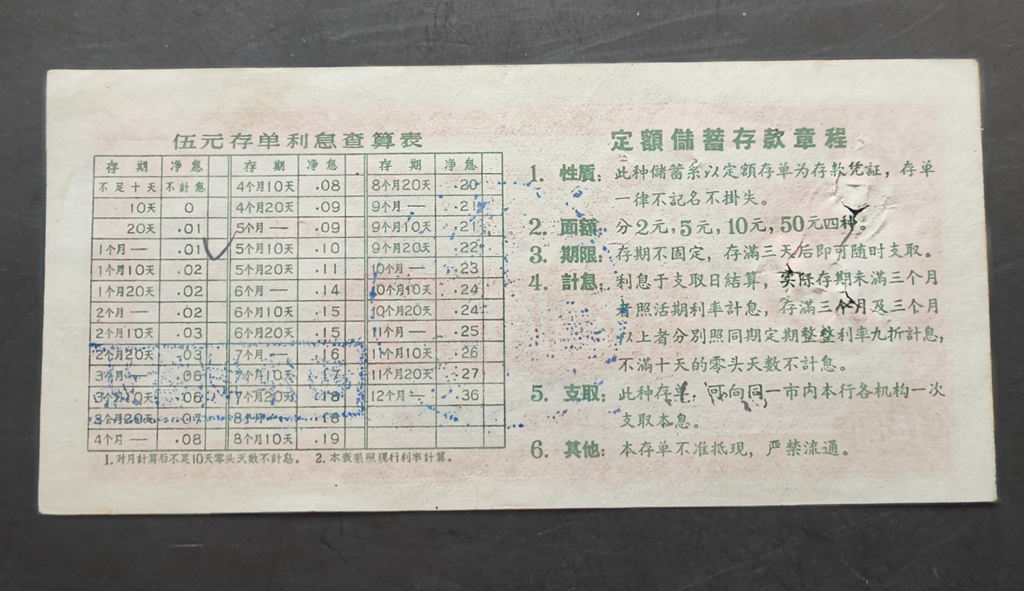 伍元存单利息查算表
存期 净息 存期 净息 存期 净息
不足十天 不計息 4个月10天 .08 8个月20天 .20
10天 0 4个月20天 .09 9个月— .21
20天 .01 5个月— .09 9个月10天 .21
1个月— .01 5个月10天 .10 9个月20天 .22
1个月10天 .02 5个月20天 .11 10个月— .23
1个月20天 .02 6个月— .14 10个月10天 .24
2个月— .02 6个月10天 .15 10个月20天 .24
2个月10天 .03 6个月20天 .15 11个月— .25
2个月20天 .03 7个月— .16 11个月10天 .26
3个月— .06 7个月10天 .17 11个月20天 .27
3个月10天 .06 7个月20天 .18 12个月— .36
3个月20天 .07 8个月— .18
4个月— .08 8个月10天 .19
1.对月計算后不足10天零头天数不計息。 2.本表系照現行利率計算。
定額儲蓄存款章程
1. 性质: 此种儲蓄系以定額存单为存款凭証,存单
一律不記名不掛失。
2. 面額: 分2元,5元,10元,50元四种。
3. 期限: 存期不固定,存滿三天后即可随时支取。
4. 計息: 利息于支取日結算,实际存期未滿三个月
者照活期利率計息,存滿三个月及三个月
以上者分别照同期定期整整利率九折計息,
不滿十天的零头天数不計息。
5. 支取: 此种存单,可向同一市内本行各机构一次
支取本息。
6. 其他: 本存单不准抵現,严禁流通。